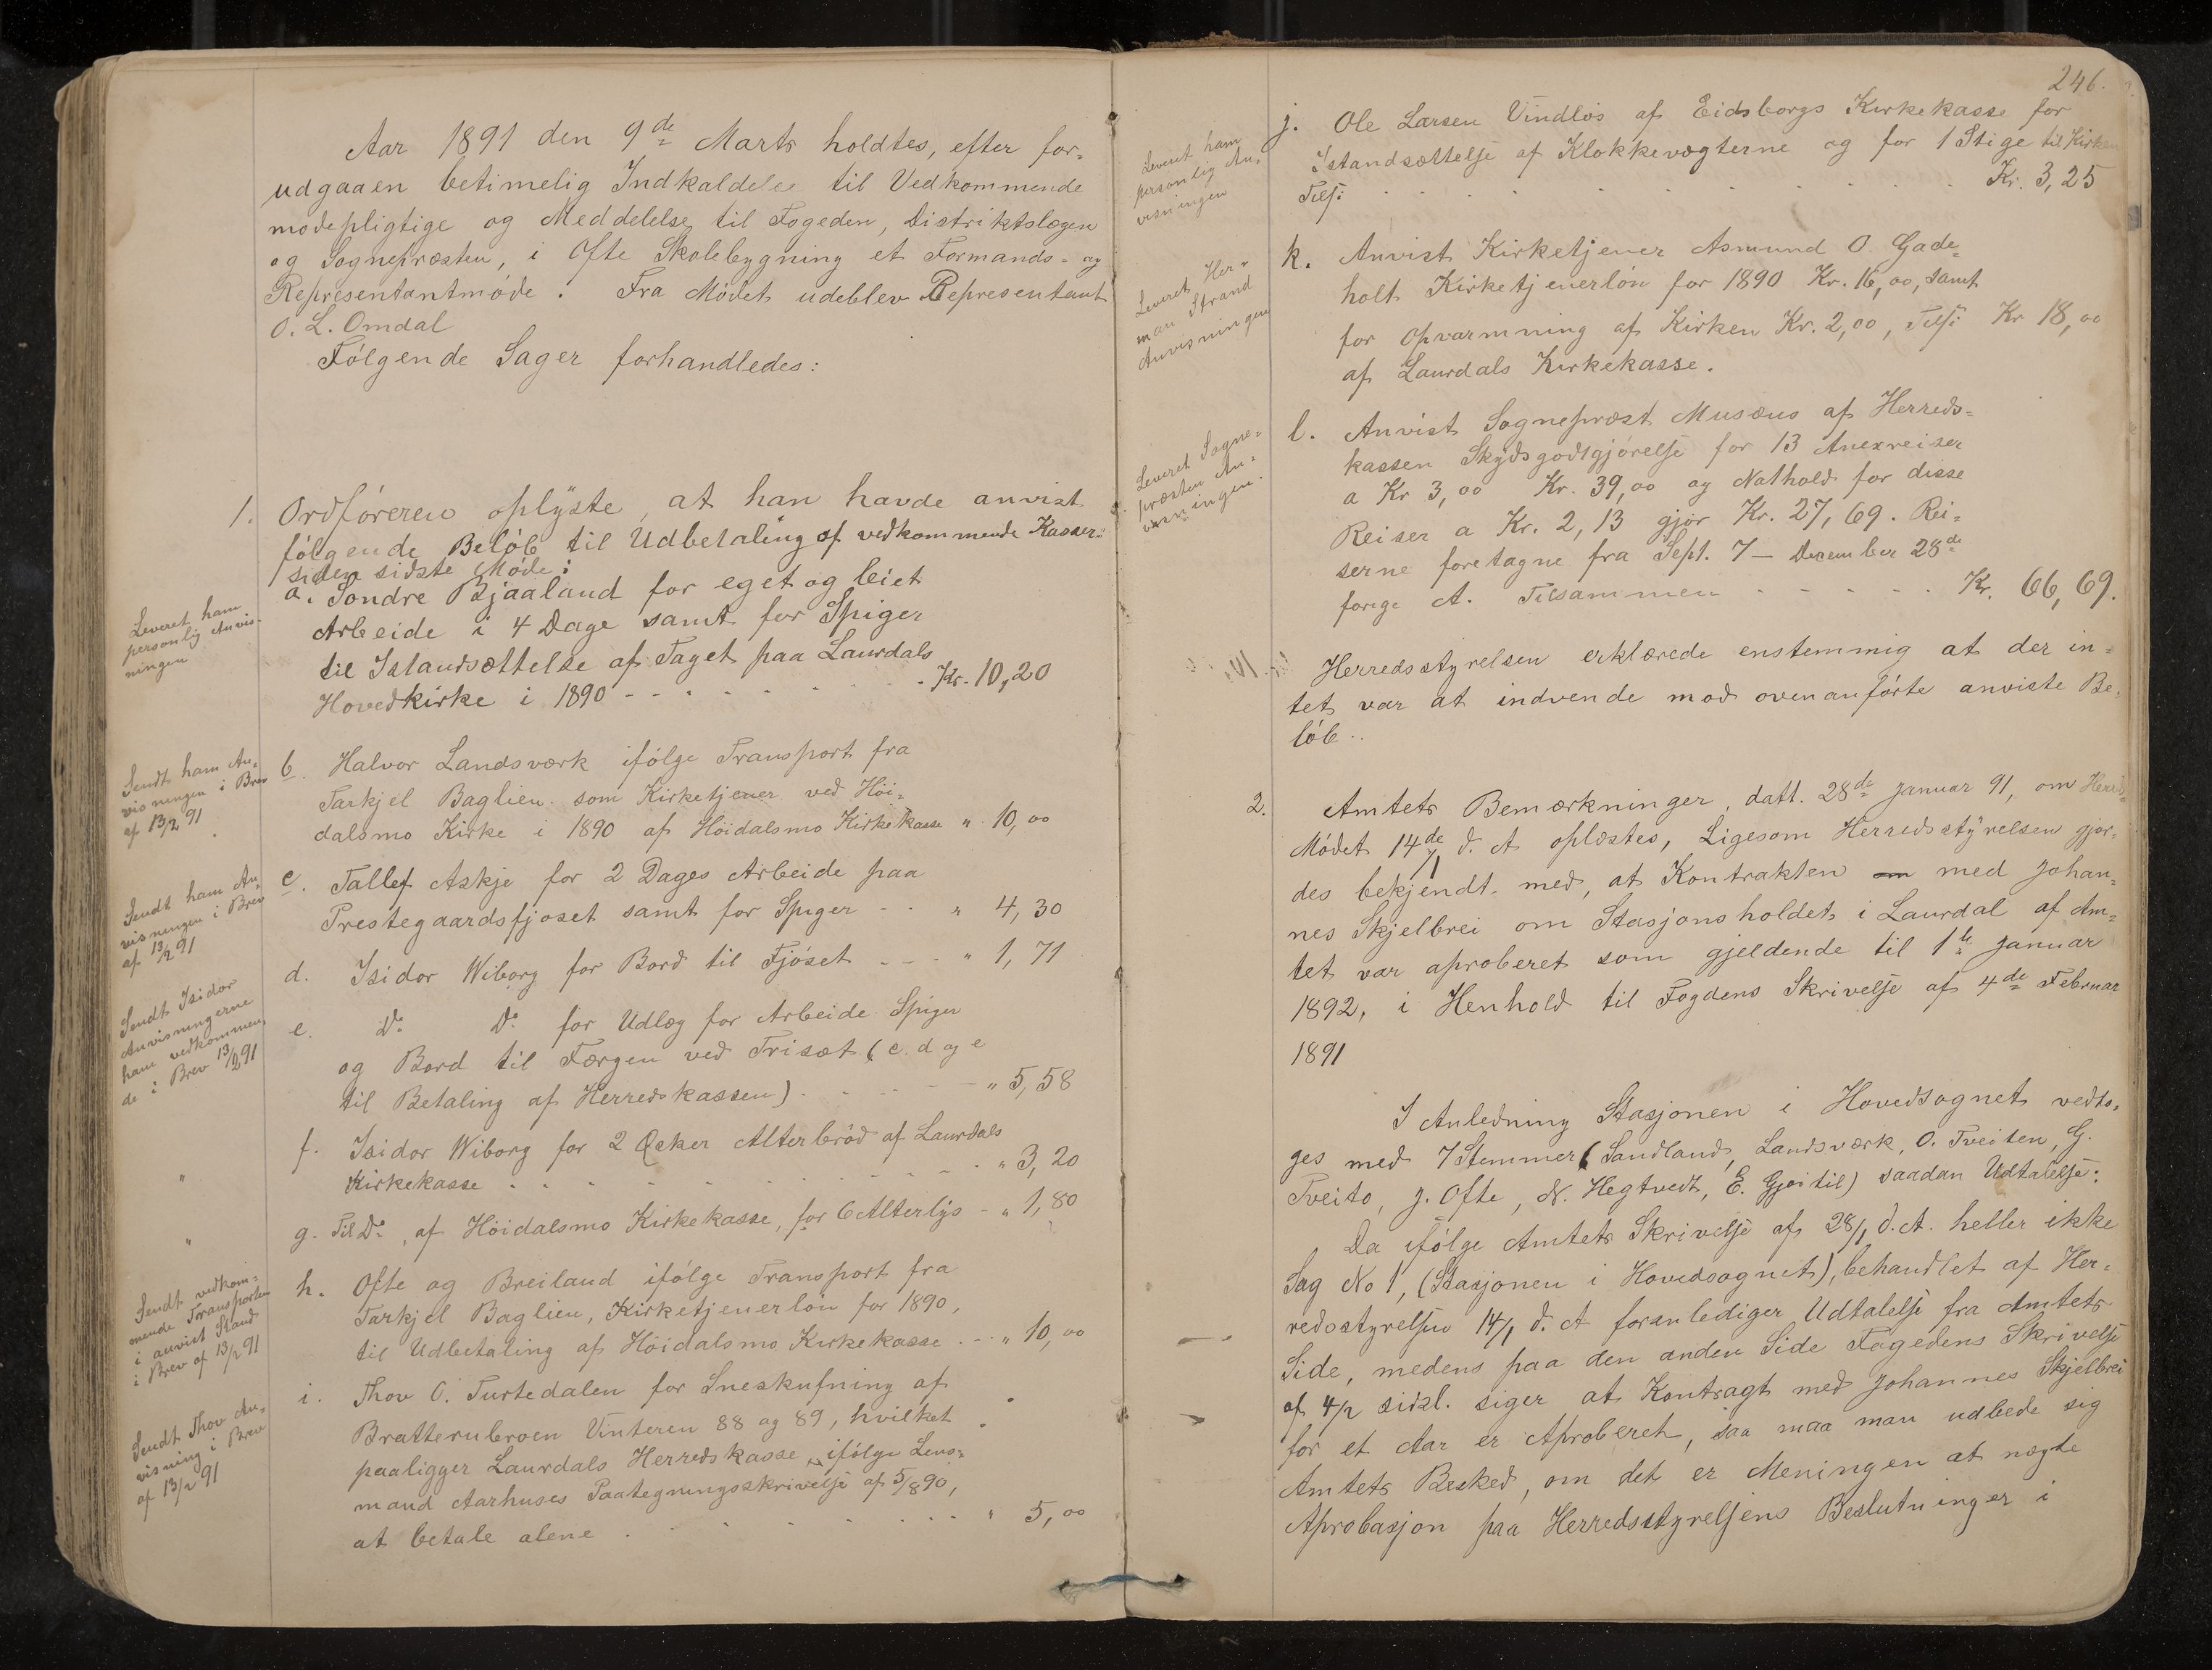 Aar 1891 den 9de Marts holdtes, efter for-
udgaaen betimelig Indkaldelse til Vedkommende
mødepligtige og Meddelelse til Fogeden, Distriktslægen
og Sognepræsten, i Ofte Skolebygning et Formands- og
Representantmøde. Fra Mødet udeblev Representant
O. L. Omdal
Følgende Sager forhandledes:
1. Ordføreren oplyste, at han havde anvist
følgende Beløb til Udbetaling af vedkommende Kasser
siden sidste Møde:
Leveret ham
personlig Anvis-
ningen
a. Søndre Bjaaland for eget og leiet
Arbeide i 4 Dage samt for Spiger
til Istandsættelse af Taget paa Laurdals
Hovedkirke i 1890 - - - - - - Kr. 10,20
Sendt ham An-
visningen i Brev
af 13/2 91
b. Halvor Landsværk ifølge Transport fra
Tarkjel Baglien som Kirketjener ved Høi-
dalsmo Kirke i 1890 af Høidalsmo Kirkekasse " 10,00
Sendt ham An-
visningen i Brev
af 13/2 91
c. Tallef Askje for 2 Dages Arbeide paa
Prestegaardsfjøset samt for Spiger - - " 4,30
d. Isidor Wiborg for Bord til Fjøset - - - " 1,71
Sendt Isidor
Anvisningerne
ham vedkommen-
de i Brev 13/2 91
e. Do Do for Udlæg for Arbeide Spiger
og Bord til Færgen ved Trisæt (c. d og e
til Betaling af Herredskassen) . . . - - " 5,58
f. Isidor Wiborg for 2 Æsker Alterbrød af Laurdals
" Kirkekasse . . . . . . . . " 3,20
" g. Til Do, af Høidalsmo Kirkekasse, for 6 Alterlys - " 1,80
Sendt vedkom-
mende Transporten
i anvist Stand
i Brev af 13/2 91
h. Ofte og Breiland ifølge Transport fra
Tarkjel Baglien, Kirketjenerløn for 1890,
til Udbetaling af Høidalsmo Kirkekasse . - - " 10,00
Sendt Thov An-
visning i Brev
af 13/2 91
i. Thov O. Turtedalen for Sneskufning af
Bratterubroen Vinteren 88 og 89, hvilket
paaligger Laurdals Herredskasse, ifølge Lens-
mand Aarhuses Paategningsskrivelse af 5/8 90,
at betale alene . . . . . . . . " 5,00
246.
Leveret ham
personlig An-
visningen
j. Ole Larsen Vindløs af Eidsborgs Kirkekasse for
Istandsættelse af Klokkevægterne og for 1 Stige til Kirken
Tils: . . . . . . . . . Kr. 3,25
Leveret Her-
man Strand
Anvisningen
k. Anvist Kirketjener Asmund O. Gade-
holt Kirketjenerløn for 1890 Kr. 16,00, samt
for Opvarmning af Kirken Kr. 2,00, Tils: Kr 18,00
af Laurdals Kirkekasse.
Leveret Sogne-
præsten An-
visningen.
l. Anvist Sogneprest Musæus af Herreds-
kassen Skydsgodtgjørelse for 13 Anexreiser
a Kr 3,00 Kr. 39,00 og Nathold for disse
Reiser a Kr. 2,13 gjør Kr. 27,69. Rei-
serne foretagne fra Sept. 7 - December 28de
forige A. Tilsammen - - - - - . Kr. 66,69.
Herredsstyrelsen erklærede enstemmig at der in-
tet var at indvende mod ovenanførte anviste Be-
løb..
2. Amtets Bemærkninger, datt. 28de Januar 91, om Herreds-
Mødet 14de/1 d. A oplæstes, Ligesom Herredsstyrelsen gjør-
des bekjendt med, at Kontrakten om med Johan-
nes Skjelbrei om Stasjonsholdet i Laurdal af Am-
tet var aproberet som gjeldende til 1te Januar
1892, i Henhold til Fogdens Skrivelse af 4de Februar
1891
I Anledning Stasjonen i Hovedsognet vedto-
ges med 7 Stemmer (Sandland, Landsværk, O. Tveiten, G.
Tveito, J. Ofte, N. Hegtvedt, E. Gjøitil) saadan Udtalelse:
Da ifølge Amtets Skrivelse af 28/1 d.A. heller ikke
Sag No 1, (Stasjonen i Hovedsognet), behandlet af Her-
redsstyrelsen 14/1 d. A foranlediger Udtalelse fra Amtets
Side, medens paa den anden Side Fogedens Skrivelse
af 4/2 sidstl. siger at Kontragt med Johannes Skjelbrei
for et Aar er Aproberet, saa maa man udbede sig
Amtets Besked, om det er Meningen at nægte
Aprobasjon paa Herredsstyrelsens Beslutninger i